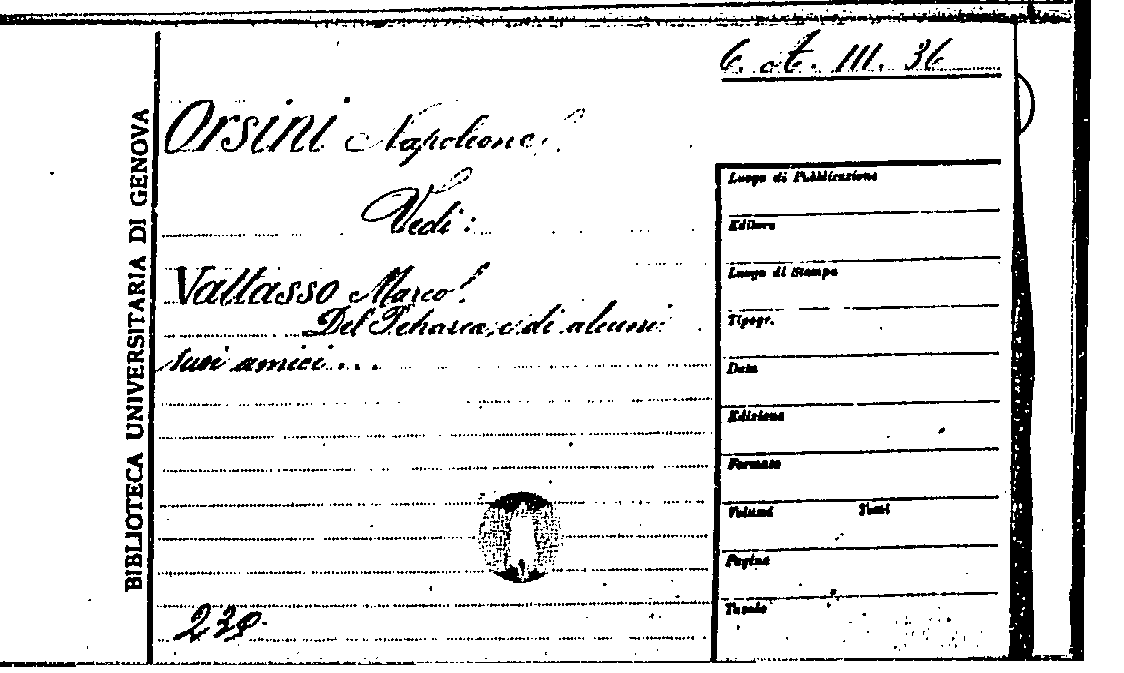 6. A. III. 36
BIBLIOTECA UNIVERSITARIA DI GENOVA
Orsini Napoleone.
Vedi:
Vattasso Marco.
Del Petrarca e di alcuni
suoi amici...
239
Luogo di Pubblicazione
Editore
Luogo di Stampa
Tipogr.
Data
Edizione
Formato
Volumi
Tomi
Pagine
Tavole